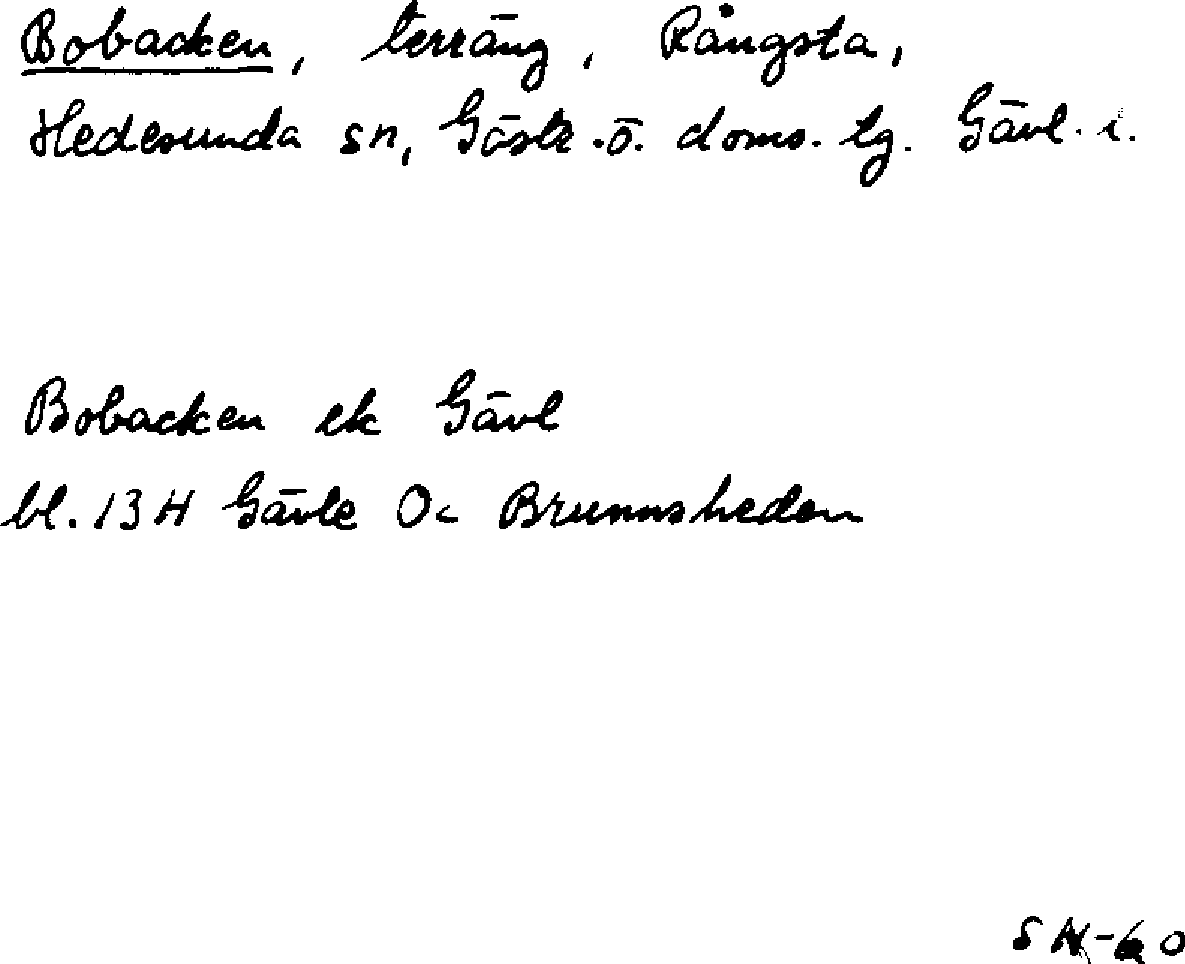 Bobacken, terräng, Rångsta,
Hedesunda sn, Gästr.ö. doms. tg. Gävl. i.
Bobacken ek Gävl
bl. 13H Gävle Oc Brunnsheden